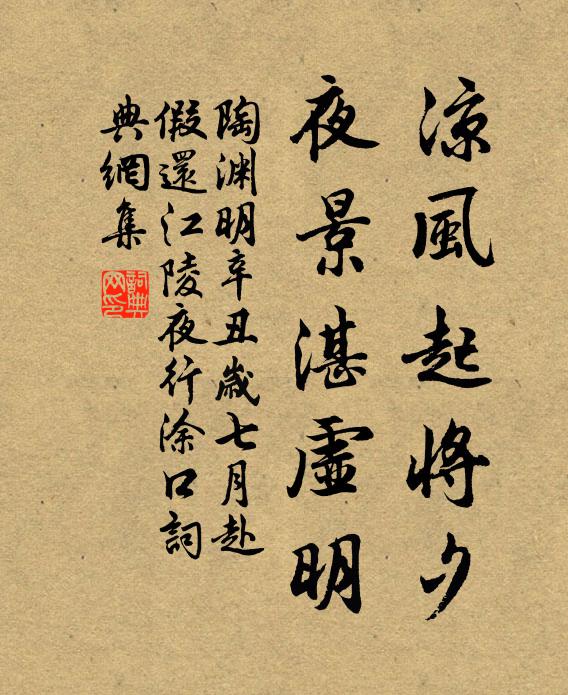 涼風起將夕
夜景湛虛明
陶渊明辛丑歲七月赴
假還江陵夜行涂口詞
典網集
詞典网印